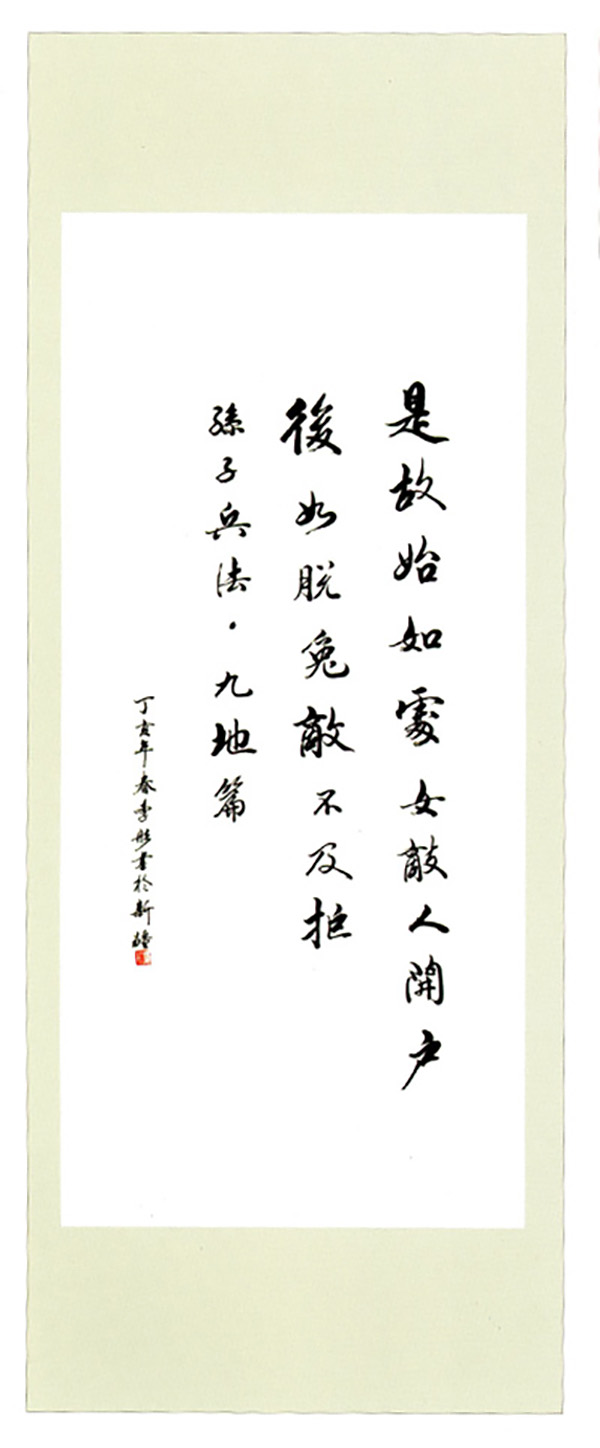 是故始如處女敵人開户
後如脱兔敵不及拒
孫子兵法·九地篇
丁亥年春李彤書於新